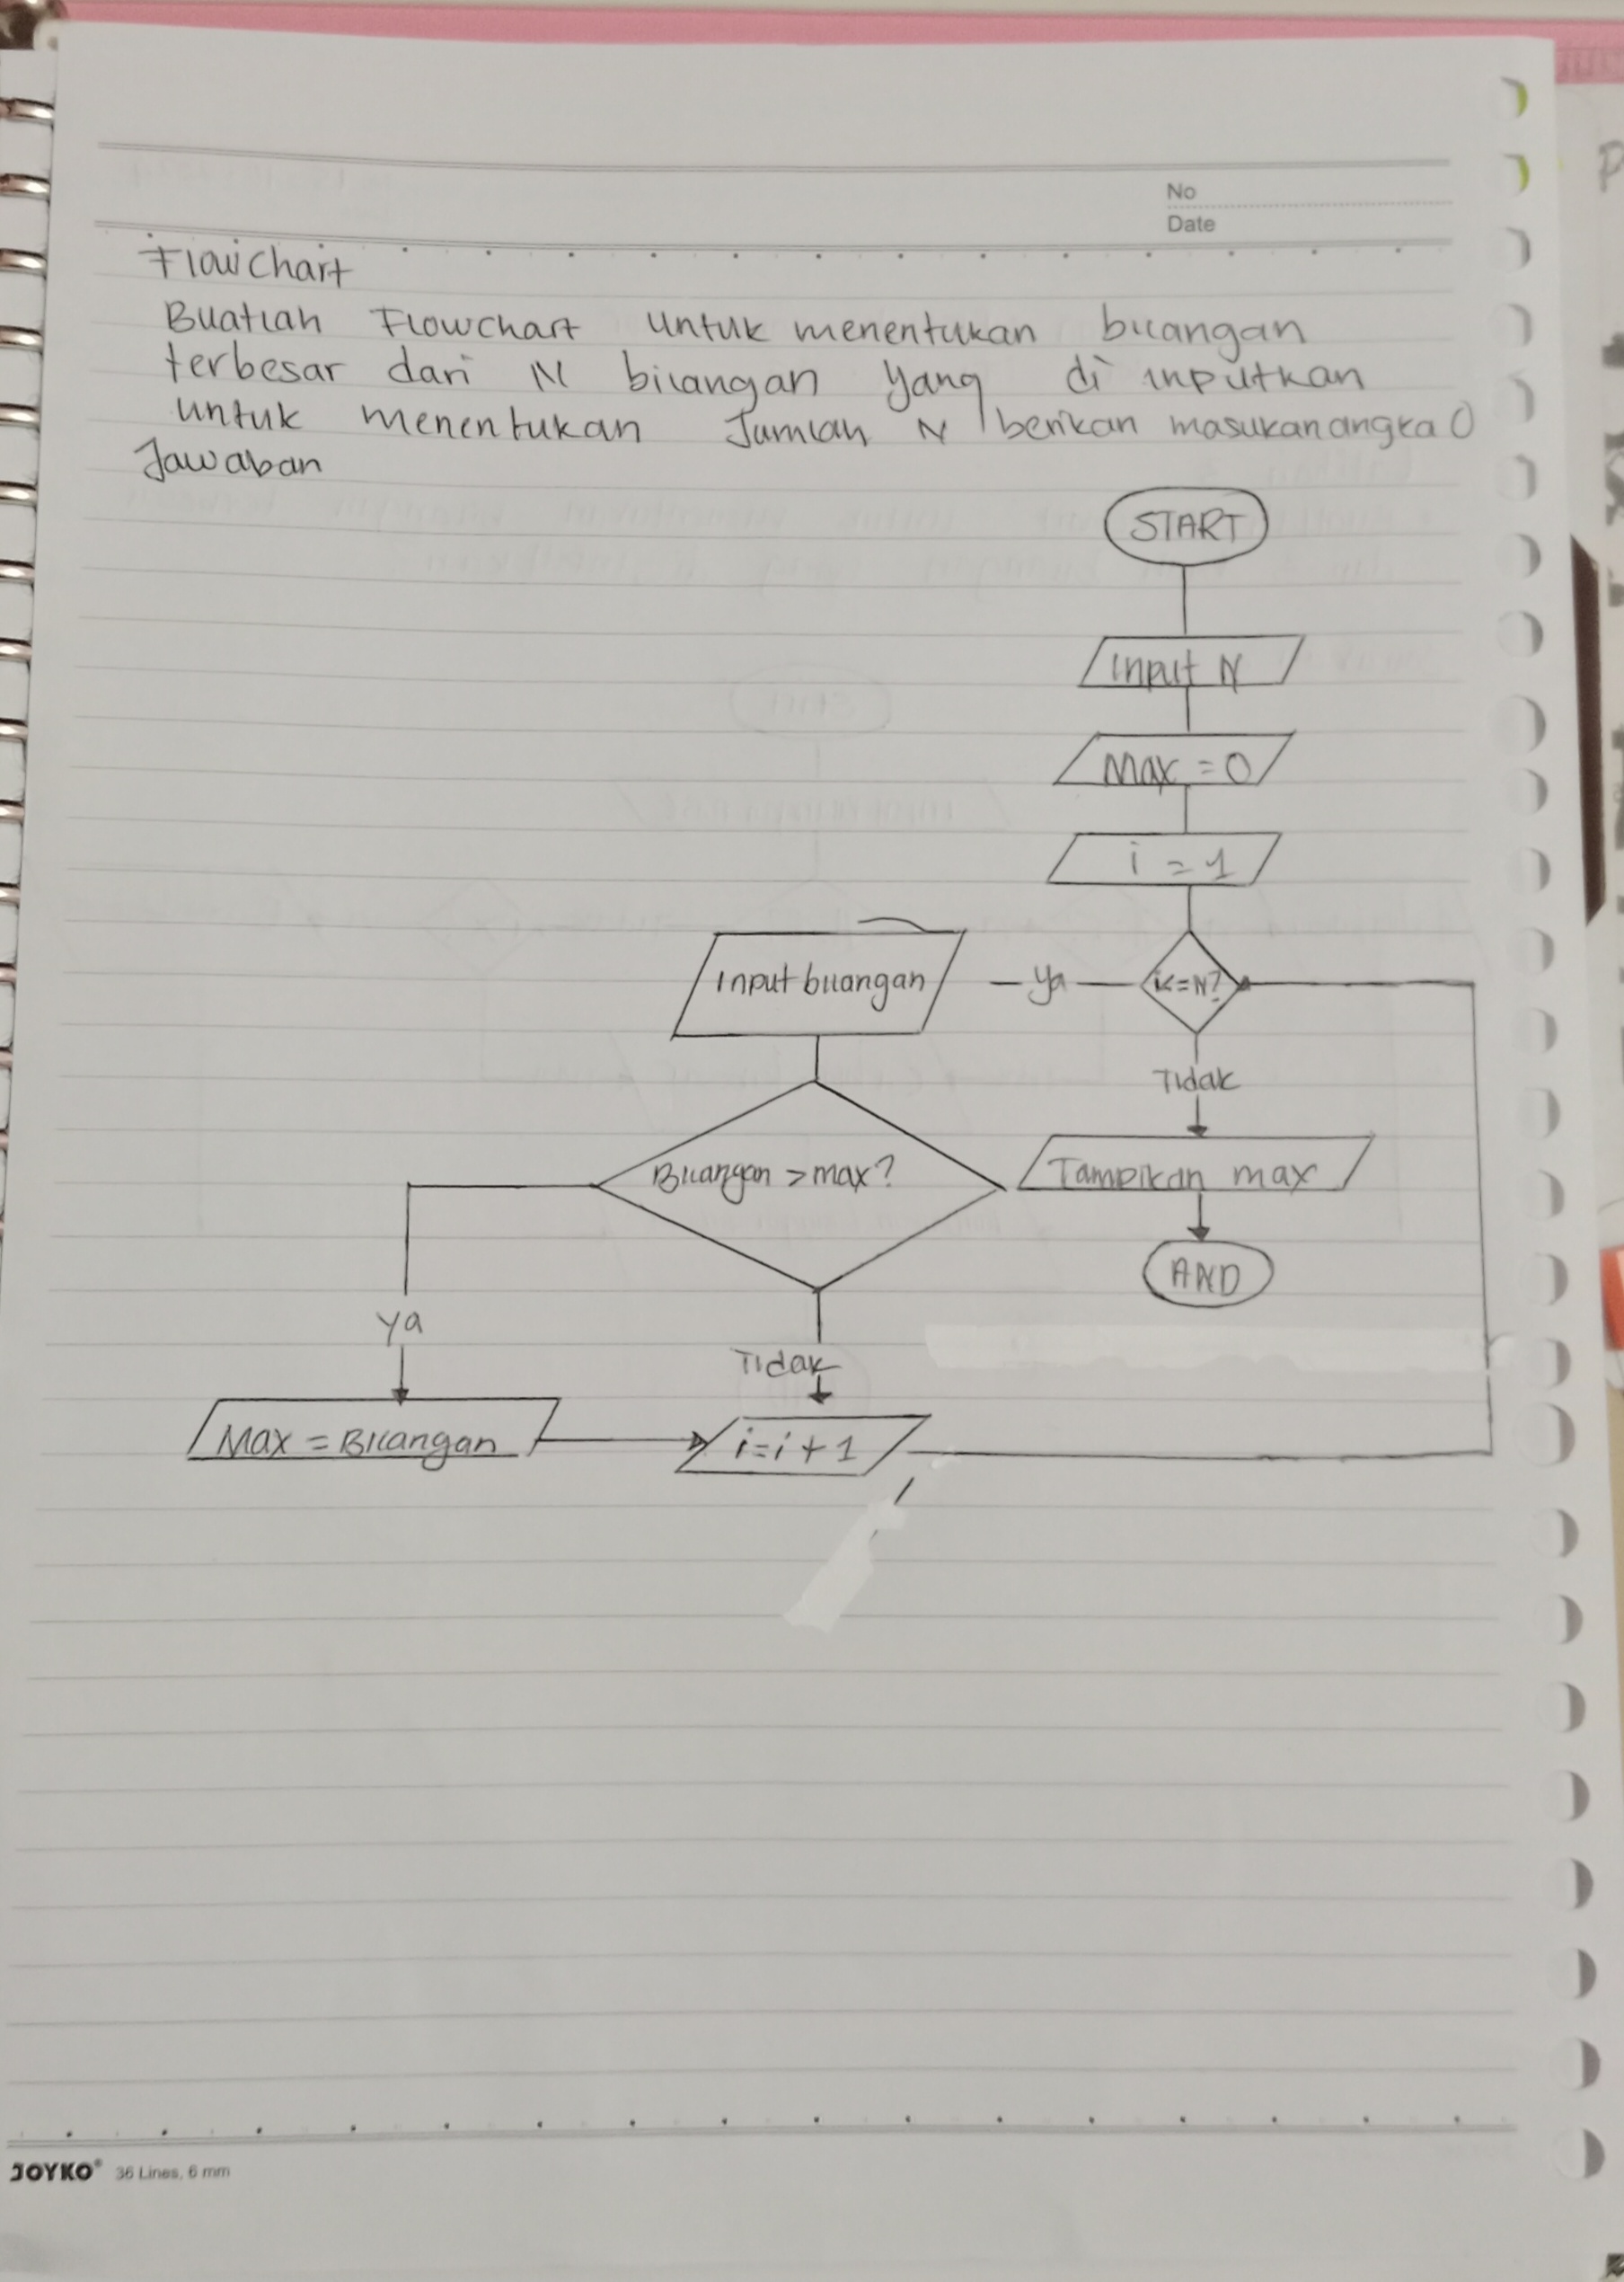 No
Date
Flowchart
Buatlah Flowchart untuk menentukan bilangan
terbesar dari N bilangan yang di inputkan
untuk menentukan Jumlah N berikan masukan angka 0
Jawaban
START
Input N
Max = 0
i = 1
i<=N?
Ya
Input bilangan
Tidak
Tampilkan max
AND
Bilangan > max?
Ya
Tidak
Max = Bilangan
i=i+1
JOYKO® 36 Lines, 6 mm